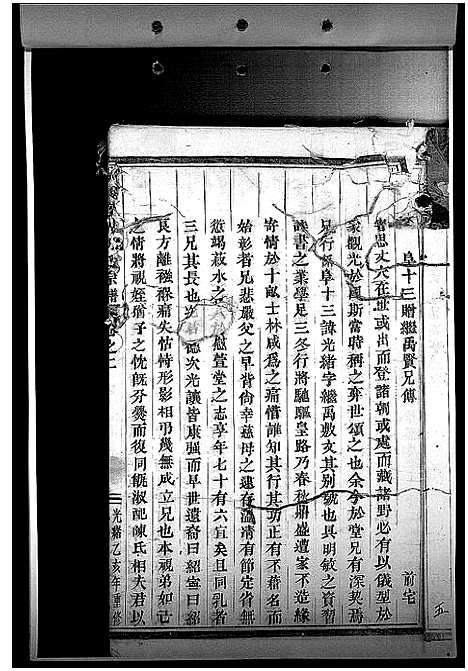 阜十三贈繼禹賢兄傳
前宅
丈夫在世或出而登諸朝或處而藏諸野必有以儀型於
家觀光於國斯當時稱之弈世頌之也余今於堂兄有深契焉
兄行阜十三諱光緒字繼禹敷文其別號也具明敏之資習
書之業學足三冬行將馳驅皇路乃春秋鼎盛遭家不造緣
寄情於十畝士林咸為之痛惜誰知其行其功正有不藉名而
始彰者兄悲嚴父之早背倘幸慈母之建存溫凊有節定省無
愆竭菽水之以慰萱堂之志享年七十有六宜矣且同乳者
三兄其長也次德次光謨皆康彊而早世遺裔曰紹宣曰紹
良方離襁褓痛失怙恃形影相弔幾無成立兄也本視弟如己
之情將視姪猶子之忱旣分爨而復同餼淑配陳氏相夫君以
宗譜卷之二
光緒乙亥年重修
五